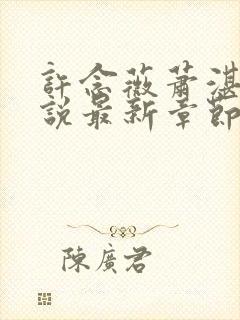 許念薇蕭湛
說最新章節
陳廣君